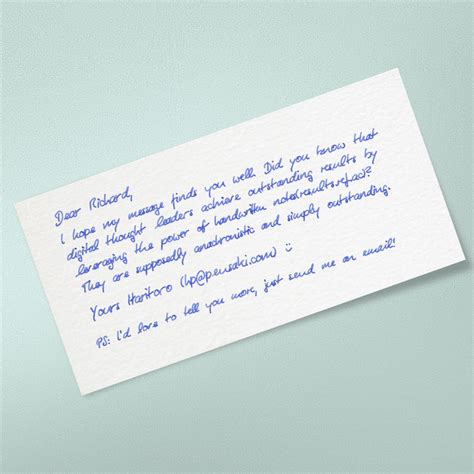 Dear Richard,
I hope my message finds you well. Did you know that
digital thought leaders achieve outstanding results by
leveraging the power of handwritten
They are supposedly anachronistic and simply outstanding.
Yours Haritoro (hp@pensaki.com) :)
PS: I'd love to tell you more, just send me an email!